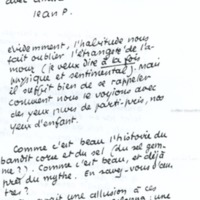 Jean P.
évidemment, l'habitude nous
fait oublier l'étrangeté de l'a-
mour (je veux dire à la fois
physique et sentimental). mais
il suffit bien de se rappeler
comment nous le voyions avec
des yeux purs de parti-pris, nos
yeux d'enfant.
Comme c'est beau l'histoire du
bandit corse et du sel (du sel gem-
me??). Comme c'est beau, et déjà
près du mythe. En savez-vous d'au-
tres?
avait une allusion à ces